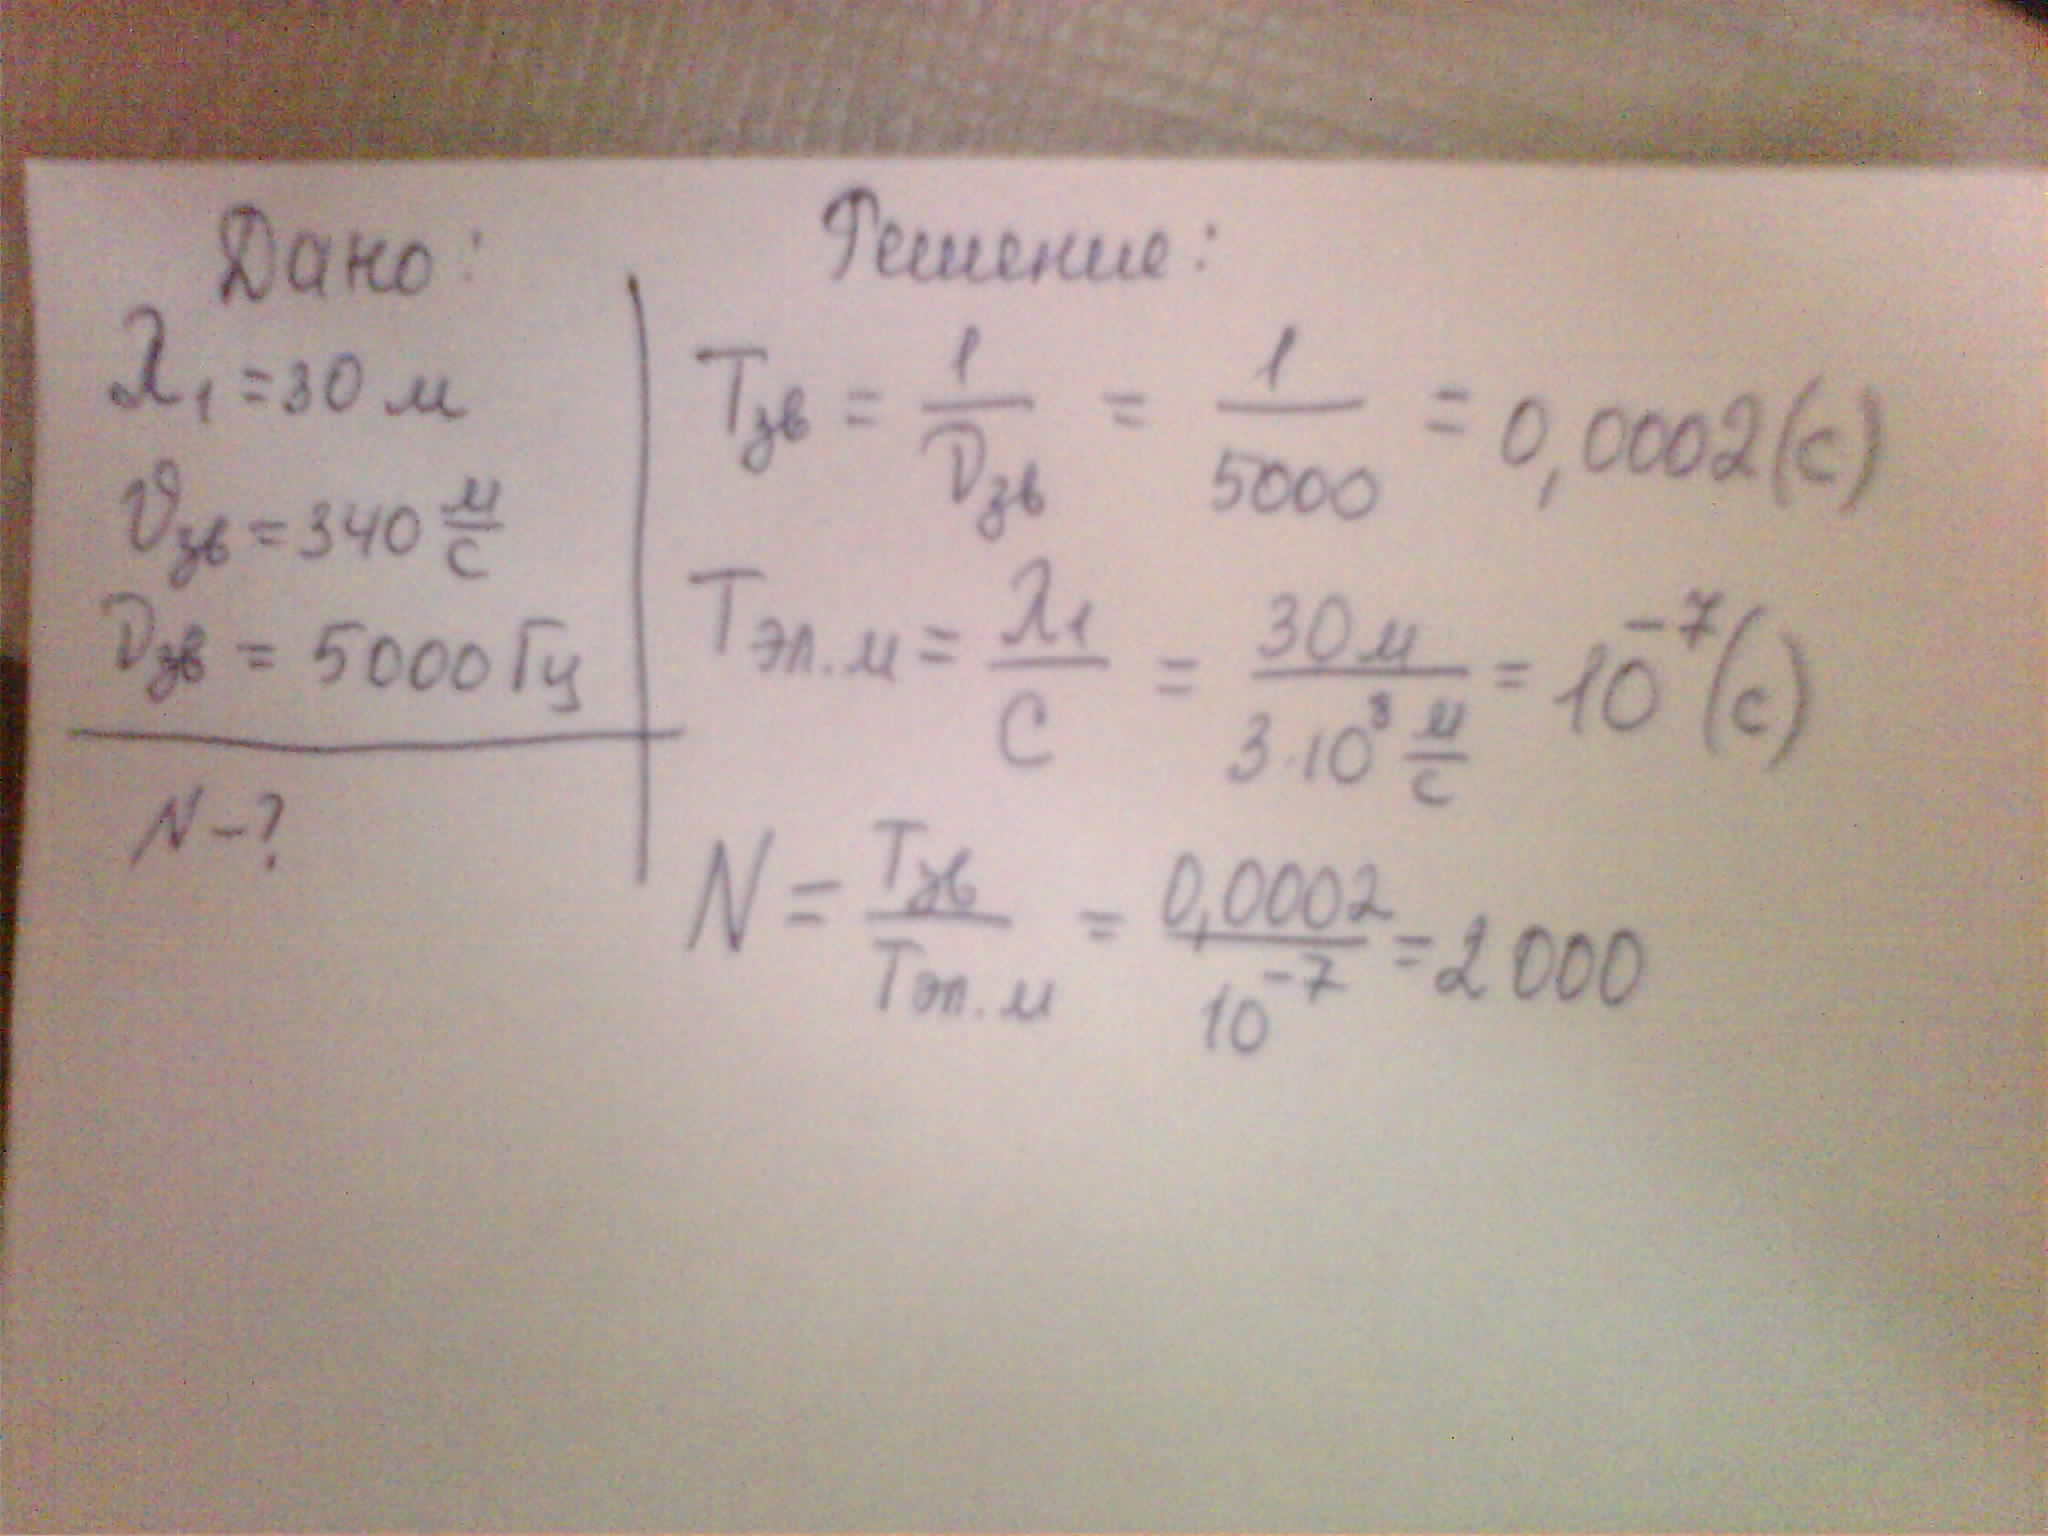 Дано:
λ₁ = 30 м
υзв = 340 м/с
νзв = 5000 Гц
N - ?
Решение:
Tзв = 1/νзв = 1/5000 = 0,0002 (с)
Tэл.м = λ₁/C = 30 м/3·10⁸ м/с = 10⁻⁷ (с)
N = Tзв/Tэл.м = 0,0002/10⁻⁷ = 2000